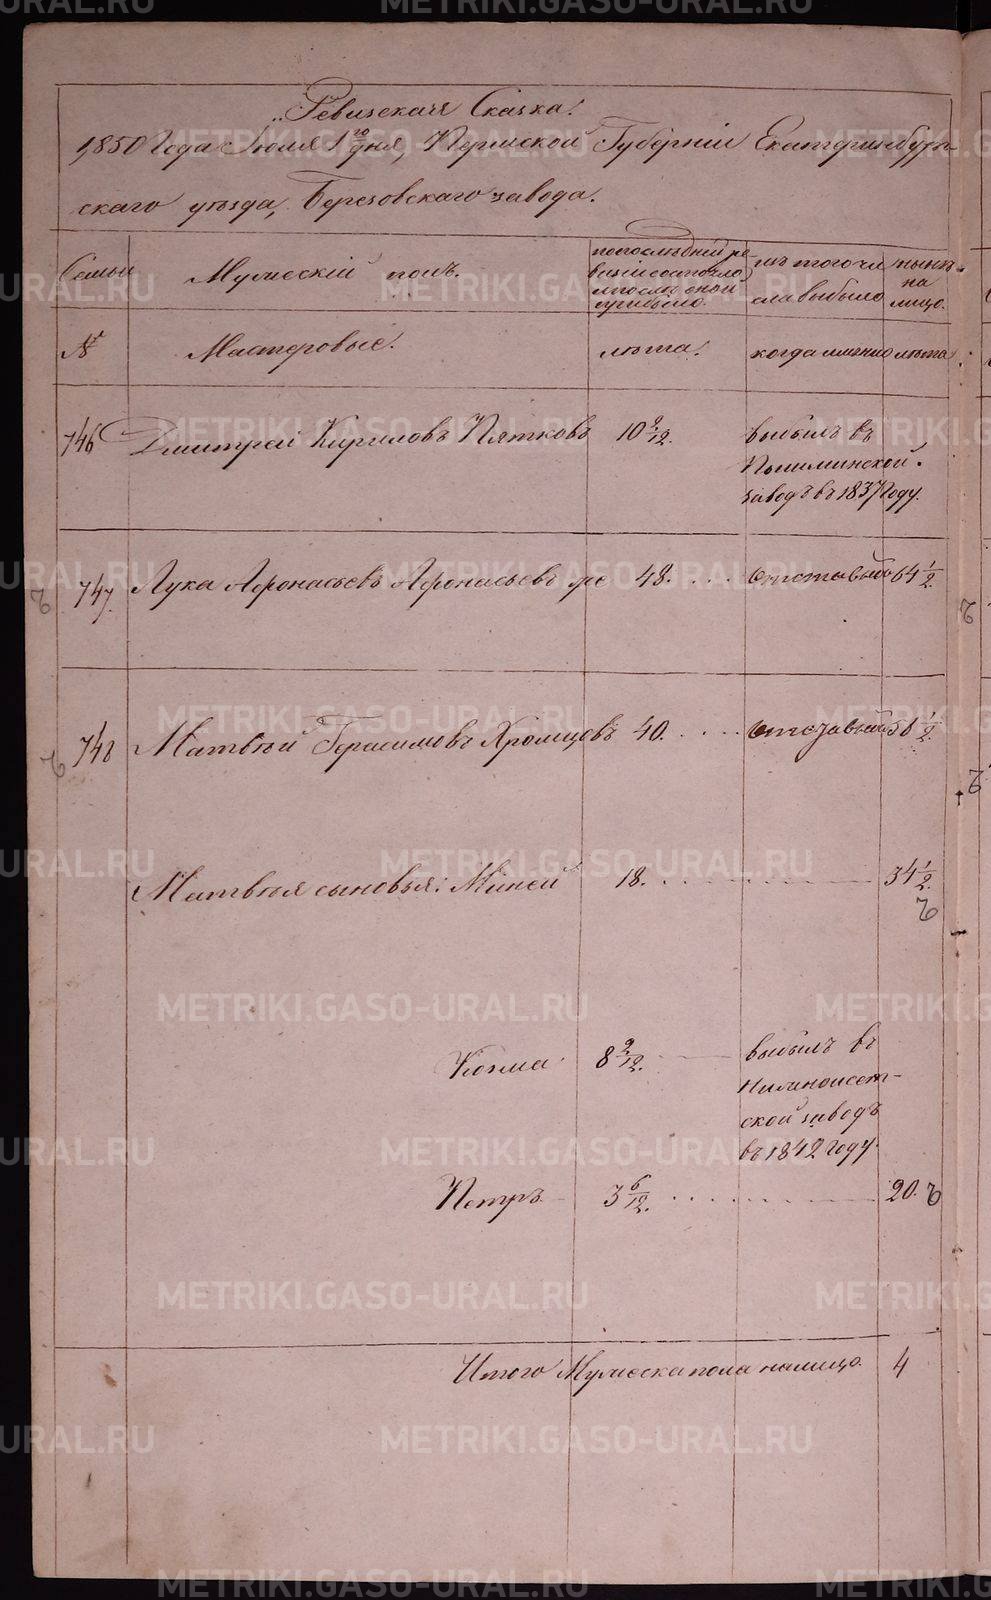 Ревизская Сказка.
1850 Года Июля 1го дня, Пермской Губерніи Екатеринбург-
скаго уезда, Березовскаго завода.
Семьи
Мужескій полъ.
по последней ре-
визіи состояло
и после оной
прибыло.
изъ того чи
сла выбыло
ныне
на
лицо.
№
Мастеровые.
лета.
когда именно
лета
746
Дмитрей Кириловъ Пятковъ
10 9/12.
выбылъ въ
Пышминской
заводъ въ 1837 году.
747.
Лука Афонасьевъ Афонасьевъ же
48. . . .
отставный
64 1/2.
748
Матвей Герасимовъ Хромцовъ
40. . . . .
отставный
56 1/2.
Матвея сыновья: Миней
18. . . . .
34 1/2.
Козма
8 9/12.
выбылъ въ
Нижноисет-
ской заводъ
въ 1842 году.
Петръ
3 6/12. . . . .
20.
Итого Мужеска пола налицо.
4
METRIKI.GASO-URAL.RU